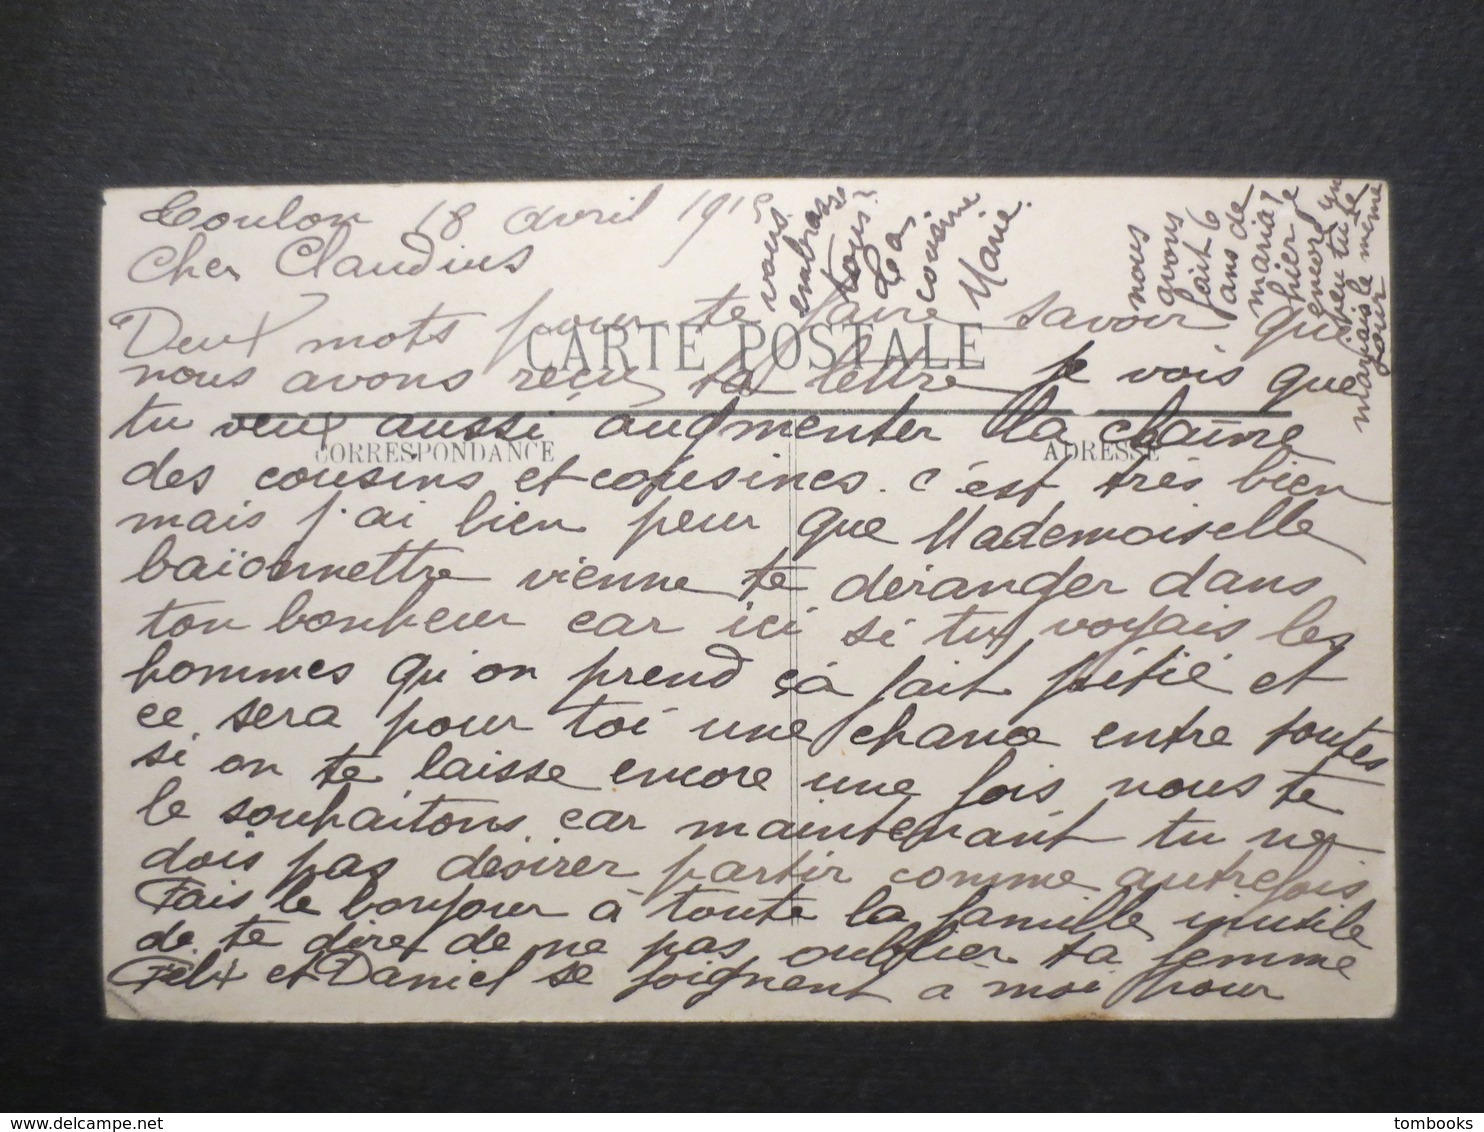 Toulon 18 avril 1915
Cher Claudius
Deux mots pour te faire savoir que
CARTE POSTALE
nous avons reçu ta lettre je vois que
tu veux aussi augmenter la chaine
CORRESPONDANCE ADRESSE
des cousins et cousines. c'est très bien
mais j'ai bien peur que Mademoiselle
baïonnettre vienne te déranger dans
ton bonheur car ici si tu voyais les
hommes qu'on prend çà fait pitié et
ce sera pour toi une chance entre toutes
si on te laisse encore une fois nous te
le souhaitons car maintenant tu ne
dois pas désirer partir comme autrefois
Fais le bonjour à toute la famille inutile
de te dire de ne pas oublier ta femme
Félix et Daniel se joignent à moi pour
vous
embrasser
tous
La
cousine
Marie.
nous
avons
fait 6
ans de
maria
hier le
encore un
peu tu te
mariais le même
jour
tombooks